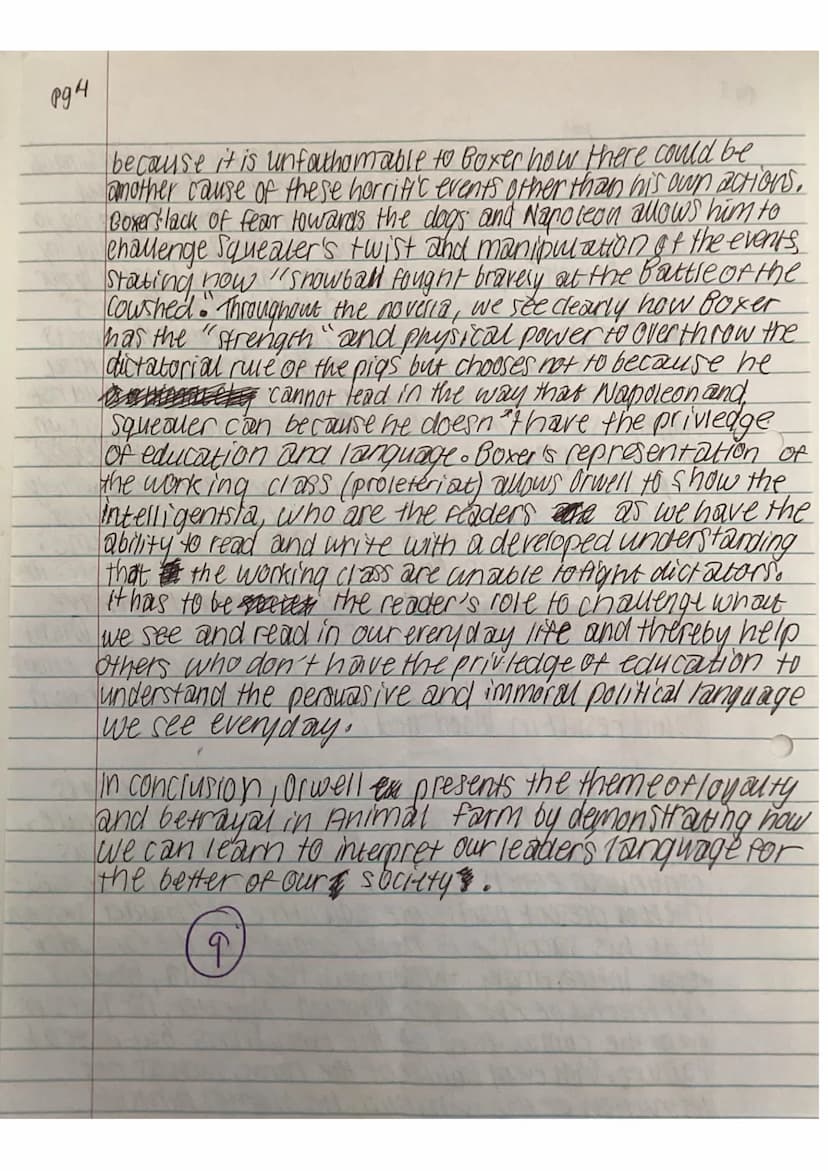 pg4
because it is unfathomable to Boxer how there could be
another cause of these horrific events other than his own actions.
Boxer's lack of fear towards the dogs and Napoleon allows him to
challenge Squealer's twist and manipulation of the events,
stating how "snowball fought bravely at the Battle of the
Cowshed". Throughout the novella, we see clearly how Boxer
has the "strength" and physical power to overthrow the
dictatorial rule of the pigs but chooses not to because he
cannot lead in the way that Napoleon and
Squealer can because he doesn't have the priviedge
of education and language. Boxer's representation of
the working class (proleteriat) allows Orwell to show the
intelligentsia, who are the readers as we have the
ability to read and write with a developed understanding
that the working class are unable to fight dictators.
It has to be the reader's role to challenge what
we see and read in our everyday life and thereby help
others who don't have the priviedge of education to
understand the persuasive and immoral political language
we see everyday.
In conclusion, Orwell presents the theme of loyalty
and betrayal in Animal farm by demonstrating how
we can learn to interpret our leaders language for
the better of our society.
9